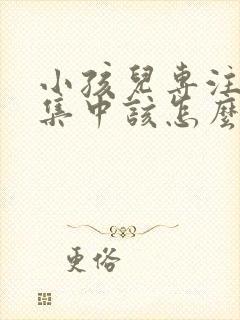 小孩兒專注
集中該怎麼
更俗